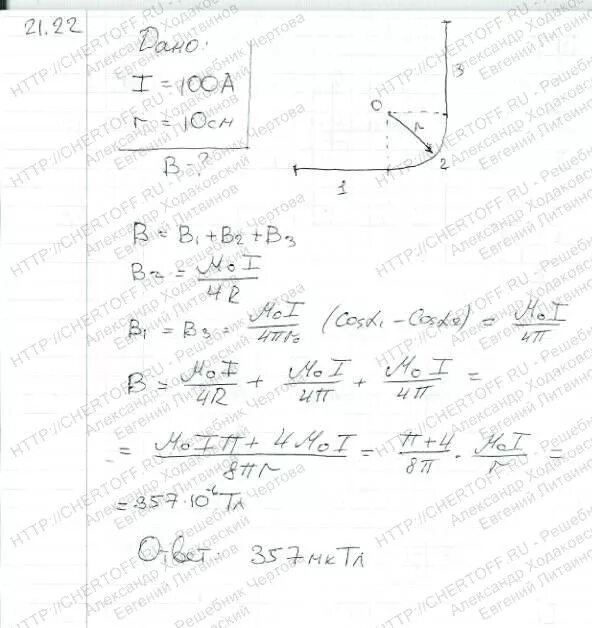 21.22
Дано:
I = 100А
r = 10см
B - ?
O
r
1
2
3
B = B₁ + B₂ + B₃
B₂ = μ₀I / 4R
B₁ = B₃ = μ₀I / 4πr₀ (cosα₁ - cosα₂) = μ₀I / 4π
B = μ₀I / 4R + μ₀I / 4π + μ₀I / 4π =
= μ₀Iπ + 4μ₀I / 8πr = π+4 / 8π · μ₀I / r =
= 357·10⁻⁶ Тл
Ответ: 357 мкТл
HTTP://CHERTOFF.RU - Решебник Чертова
Александр Ходаковский
Евгений Литвинов